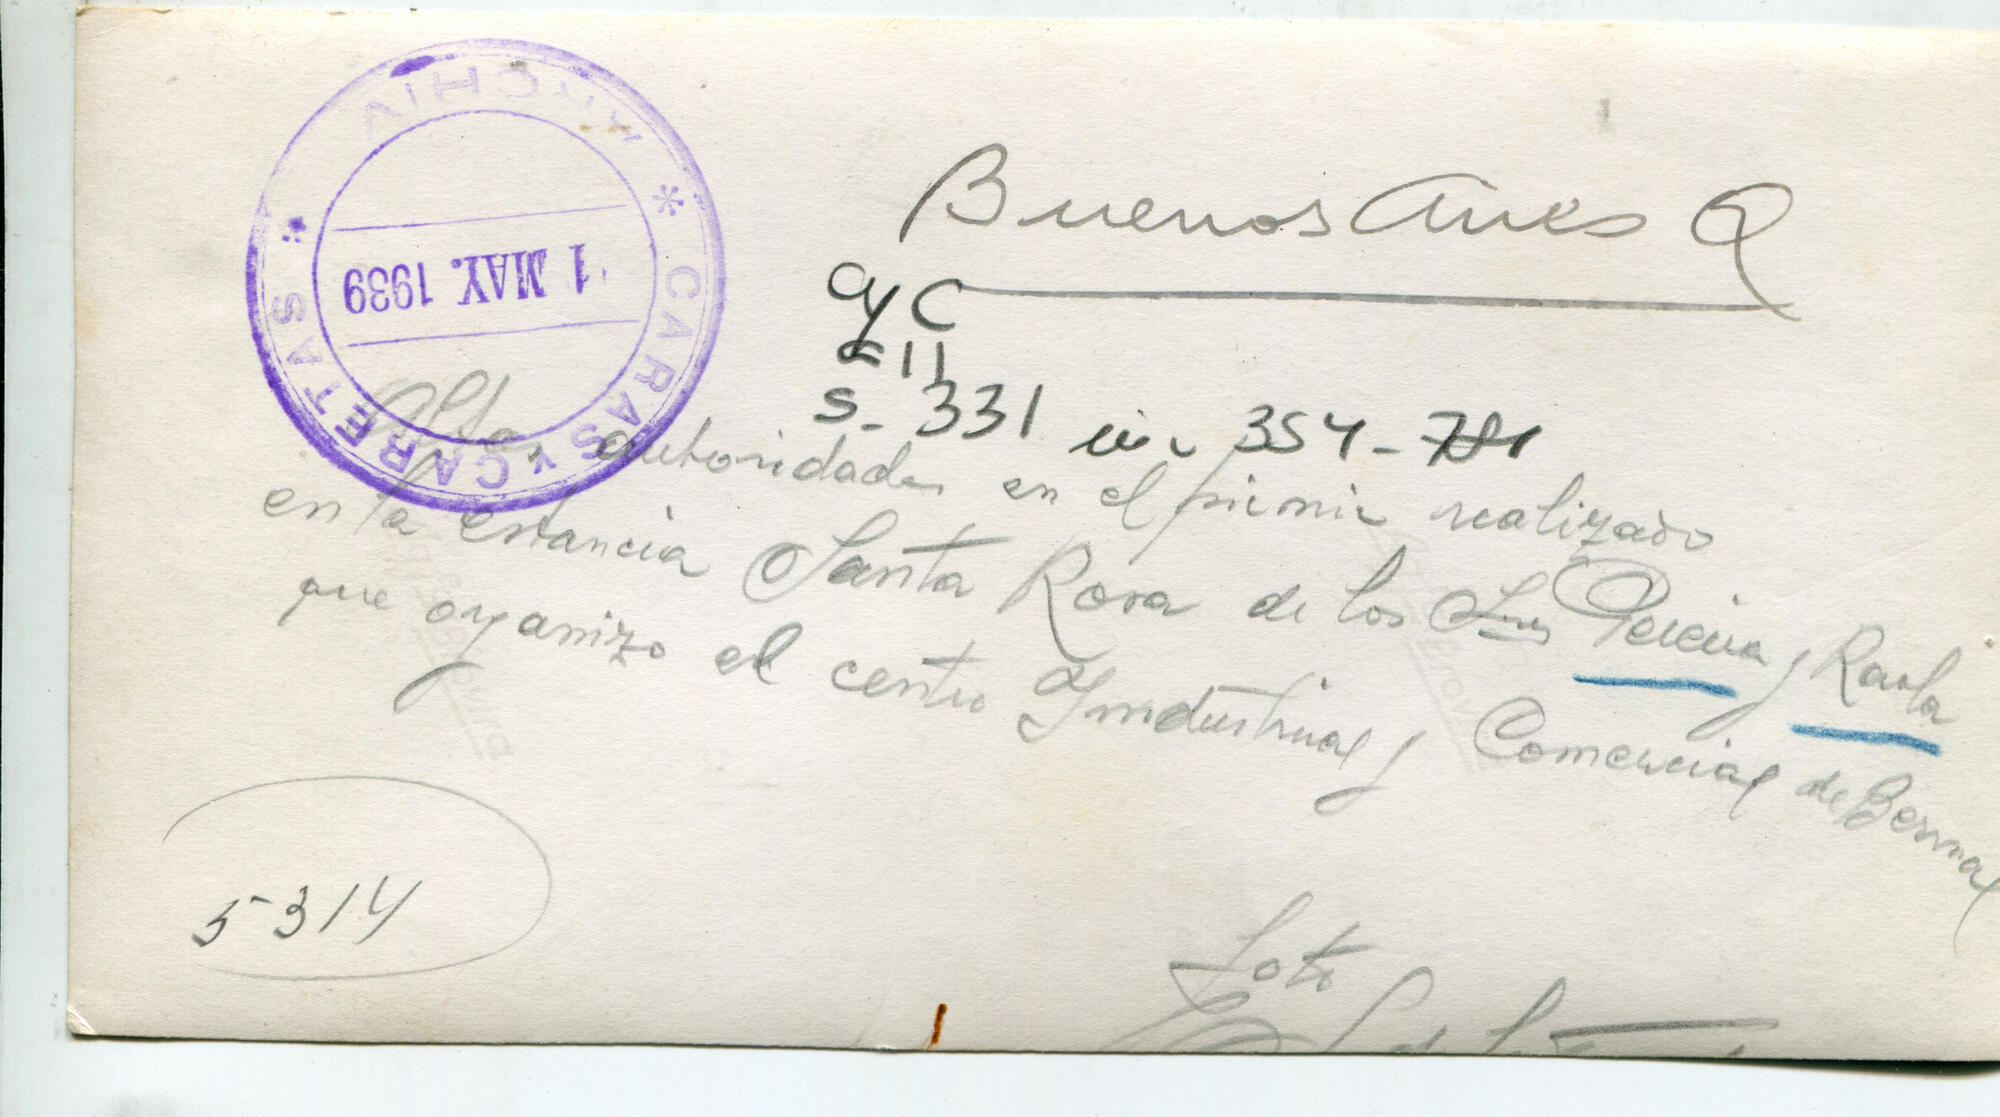 ARCHIV
* CARAS Y CARETAS *
1 MAY. 1939
Buenos Aires
CyC
S- 331 354-
Altas autoridades en el picnic realizado
en la estancia Santa Rosa de los Sres Pereira y Rasla
que organizo el centro Industrial y Comercial de Bernal
5314
Foto